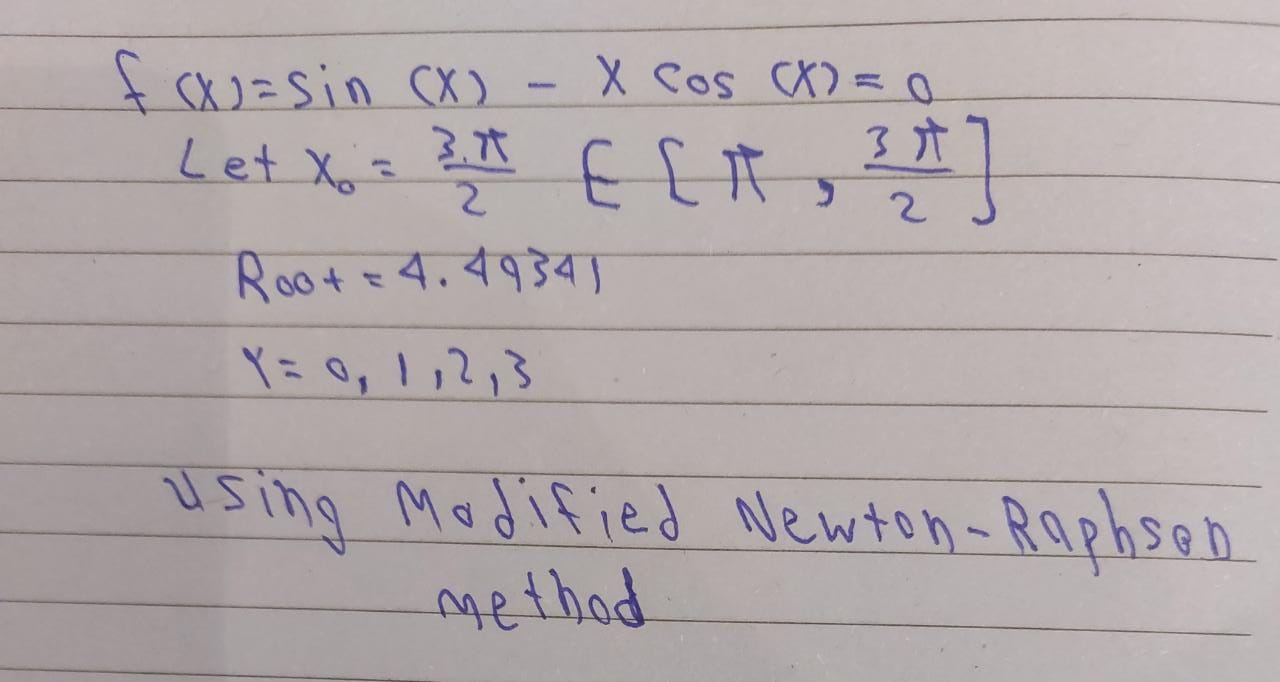 f(x)=sin (x) - x cos (x)=0
Let x₀ = 3π/2 ∈ [π, 3π/2]
Root = 4.49341
r = 0, 1, 2, 3
using Modified Newton-Raphson
method